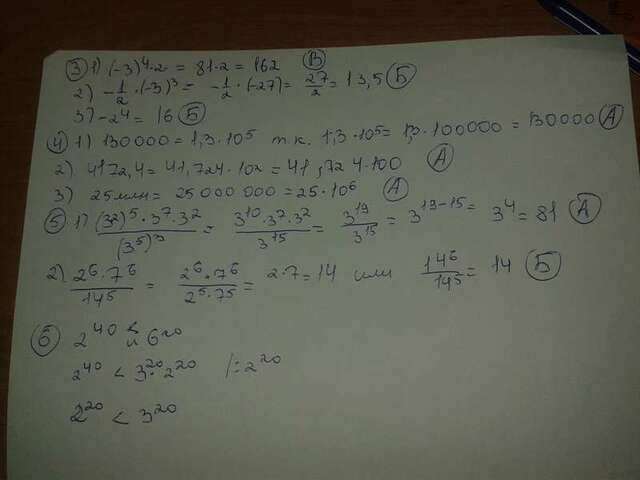 ③ 1) (-3)⁴·2 = 81·2 = 162 Ⓑ
2) -1/2·(-3)³ = -1/2·(-27) = 27/2 = 13,5 Ⓑ
3) -2⁴ = 16 Ⓑ
④ 1) 130000 = 1,3·10⁵ т.к. 1,3·10⁵ = 1,3·100000 = 130000 Ⓐ
2) 4172,4 = 41,724·10² = 41,724·100 Ⓐ
3) 25 млн = 25 000 000 = 25·10⁶ Ⓐ
⑤ 1) (3²)⁵·3⁷·3²/(3⁵)³ = 3¹⁰·3⁷·3²/3¹⁵ = 3¹⁹/3¹⁵ = 3¹⁹⁻¹⁵ = 3⁴ = 81 Ⓐ
2) 2⁶·7⁶/14⁵ = 2⁶·7⁶/2⁵·7⁵ = 2·7 = 14 или 14⁶/14⁵ = 14 Б
⑥ 2⁴⁰ < и 6²⁰
2⁴⁰ < 3²⁰·2²⁰ /:2²⁰
2²⁰ < 3²⁰